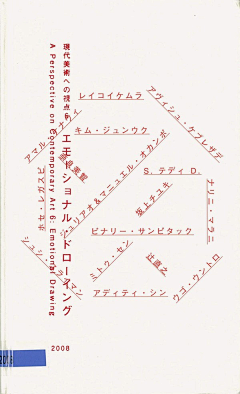 現代美術への視点 6 エモーショナル・ドローイング
A Perspective on Contemporary Art 6: Emotional Drawing
レイコイケムラ
アヴィシュ・ケブレザデ
キム・ジュンウク
アマル・ケナウィ
奈良美智
ジュリアオ&マニュエル・オカンポ
S. テディ D.
坂上チユキ
ナリニ・マラニ
ホセ・レガスピ
ピナリー・サンピタック
ミトゥ・セン
辻直之
ウゴ・ウントロ
アディティ・シン
2008